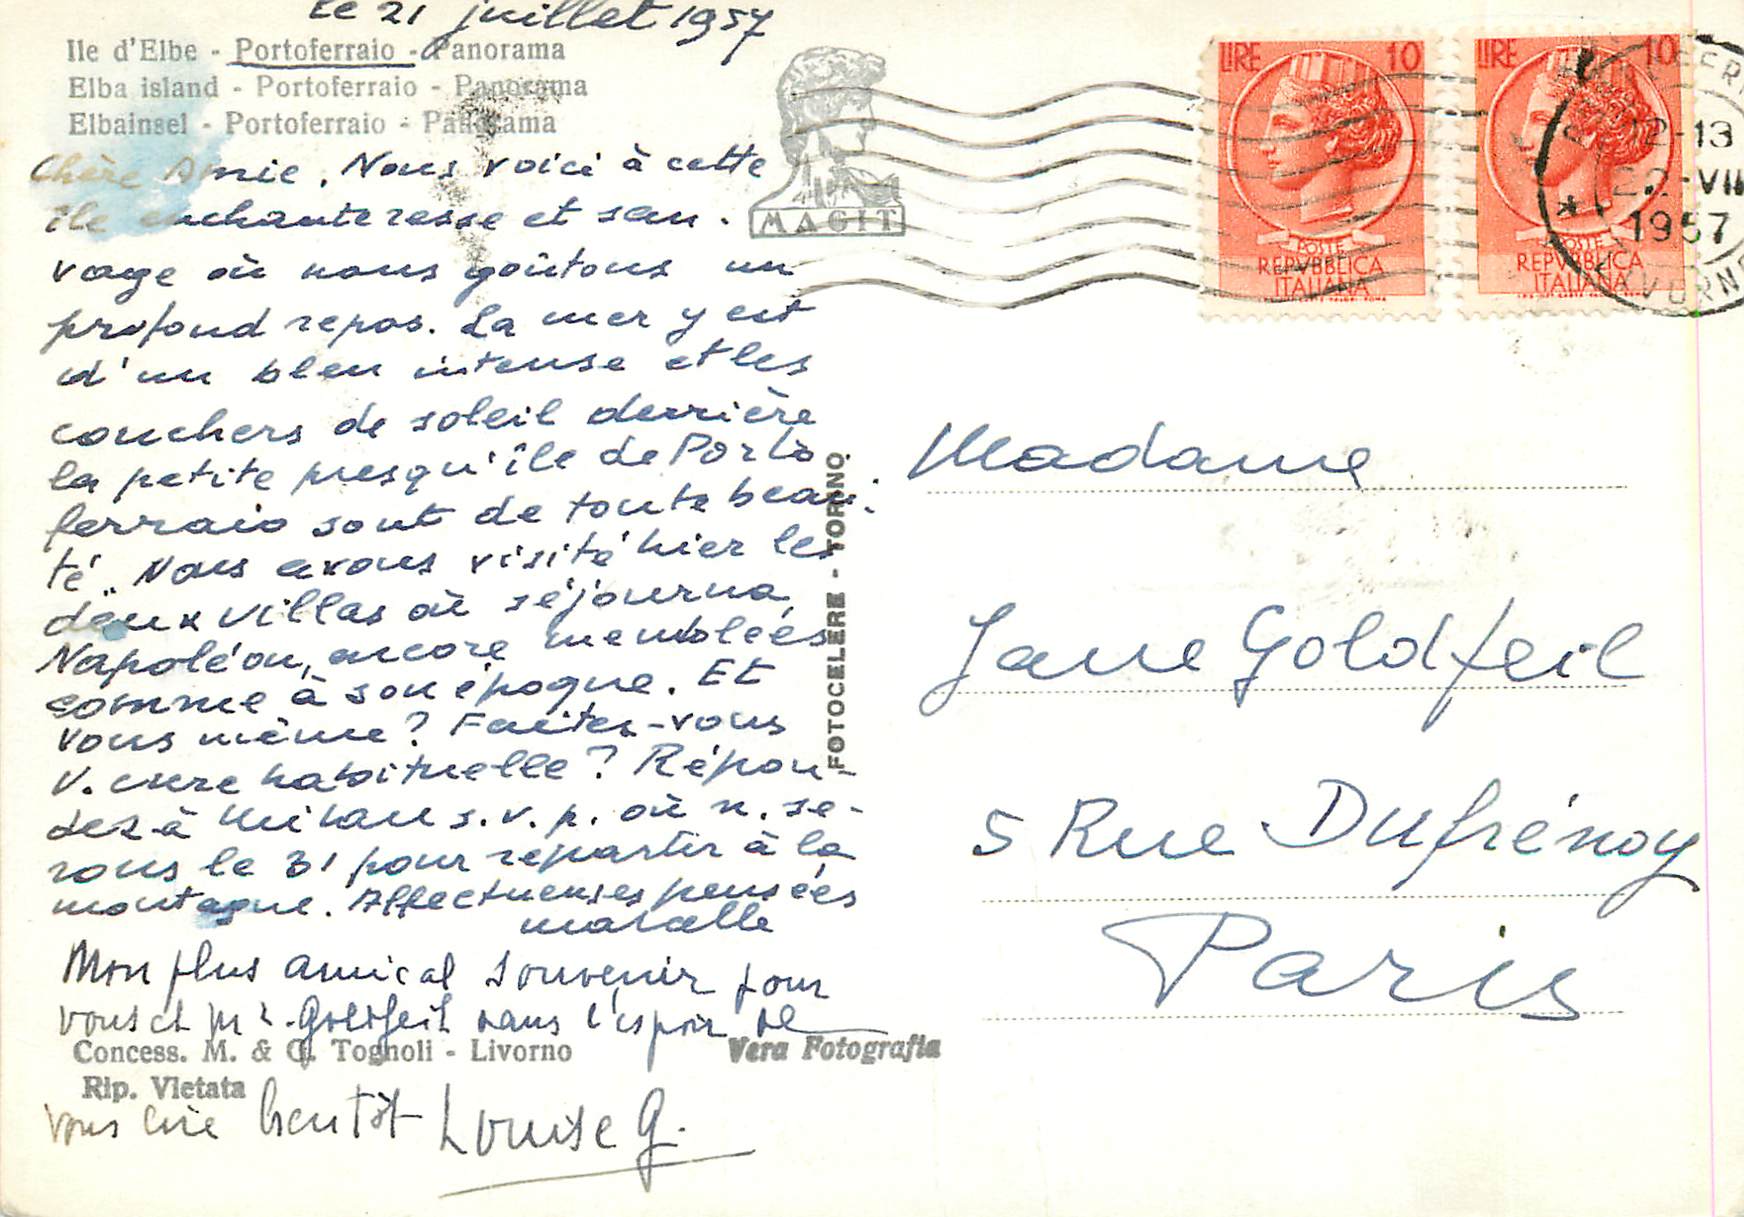 Le 21 juillet 1957
Ile d'Elbe - Portoferraio - Panorama
Elba island - Portoferraio - Panorama
Elbainsel - Portoferraio - Panorama
Chère Amie. Nous voici à cette
île enchanteresse et sau-
vage où nous goûtons un
profond repos. La mer y est
d'un bleu intense et les
couchers de soleil derrière
la petite presqu'île de Porto
ferraio sont de toute beau-
té. Nous avons visité hier les
deux villas où séjourna
Napoléon, encore meublées
comme à son époque. Et
vous même? Faites-vous
v. cure habituelle? Répon-
dez à Milan s.v.p. où n. se-
rons le 31 pour repartir à la
montagne. Affectueuses pensées
Marcelle
Mon plus amical souvenir pour
vous et Mr. Goldfeil dans l'espoir de
Concess. M. & G. Tognoli - Livorno
Vera Fotografia
Rip. Vietata
vous lire bientôt Louise G.
FOTOCELERE - TORINO
MAGIT
LIRE 10
POSTE
REPVBBLICA
ITALIANA
LIRE 10
POSTE
REPVBBLICA
ITALIANA
12-13
22-VII
1957
Madame
Jane Goldfeil
5 Rue Dufrénoy
Paris